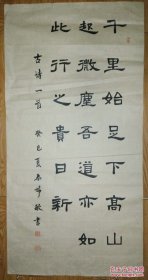 千里始足下高山
起微塵吾道亦如
此行之貴日新
古诗一首 癸巳夏 敏書